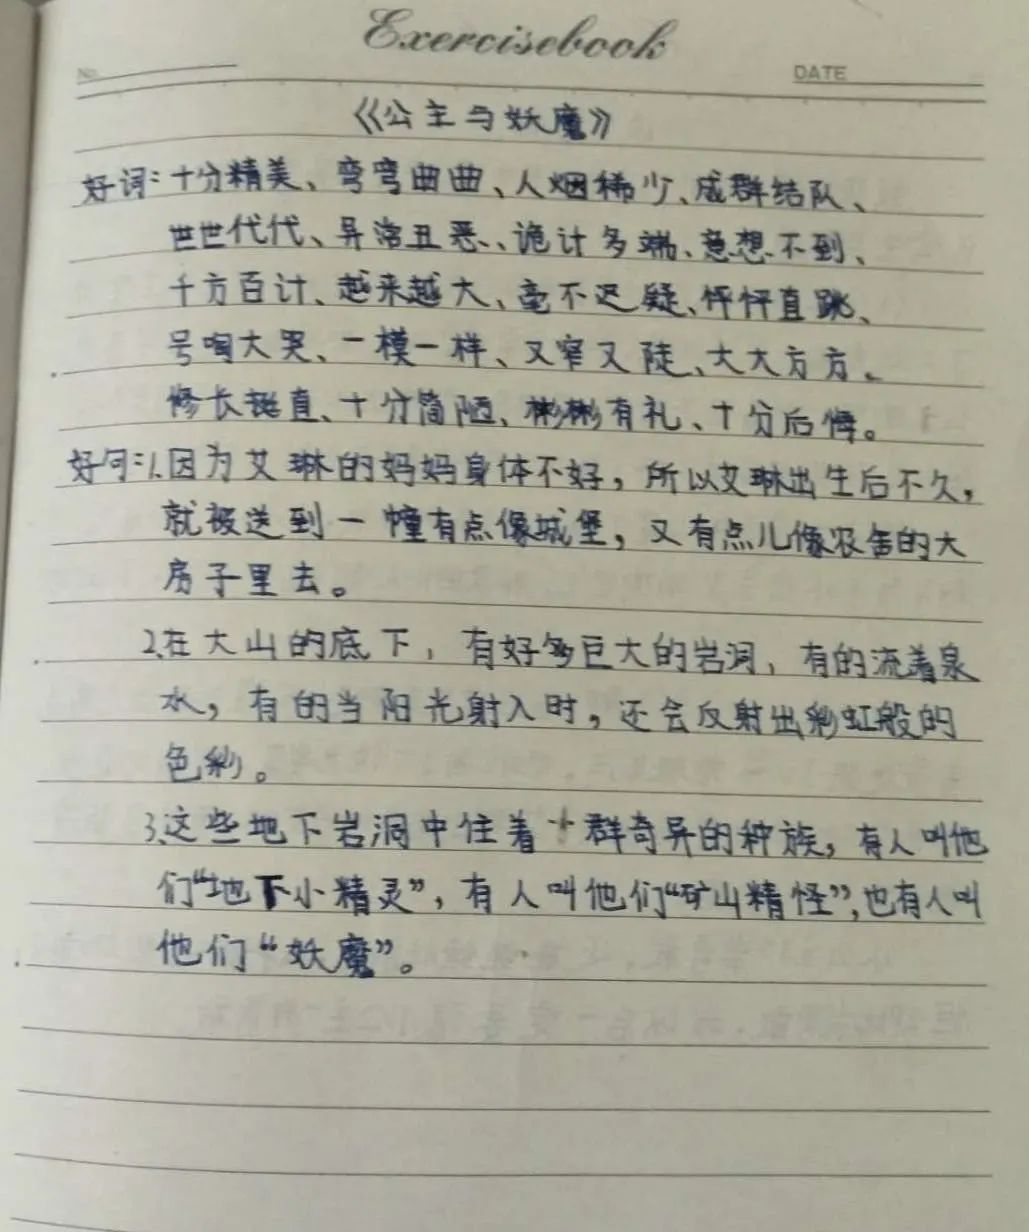 Exercisebook
No.
DATE
《公主与妖魔》
好词:十分精美、弯弯曲曲、人烟稀少、成群结队、
世世代代、异常丑恶、诡计多端、意想不到、
千方百计、越来越大、毫不迟疑、怦怦直跳、
号啕大哭、一模一样、又窄又陡、大大方方、
修长挺直、十分简陋、彬彬有礼、十分后悔。
好句:1.因为艾琳的妈妈身体不好,所以艾琳出生后不久,
就被送到一幢有点像城堡,又有点儿像农舍的大
房子里去。
2.在大山的底下,有好多巨大的岩洞,有的流着泉
水,有的当阳光射入时,还会反射出彩虹般的
色彩。
3.这些地下岩洞中住着一群奇异的种族,有人叫他
们“地下小精灵”,有人叫他们“矿山精怪”,也有人叫
他们“妖魔”。